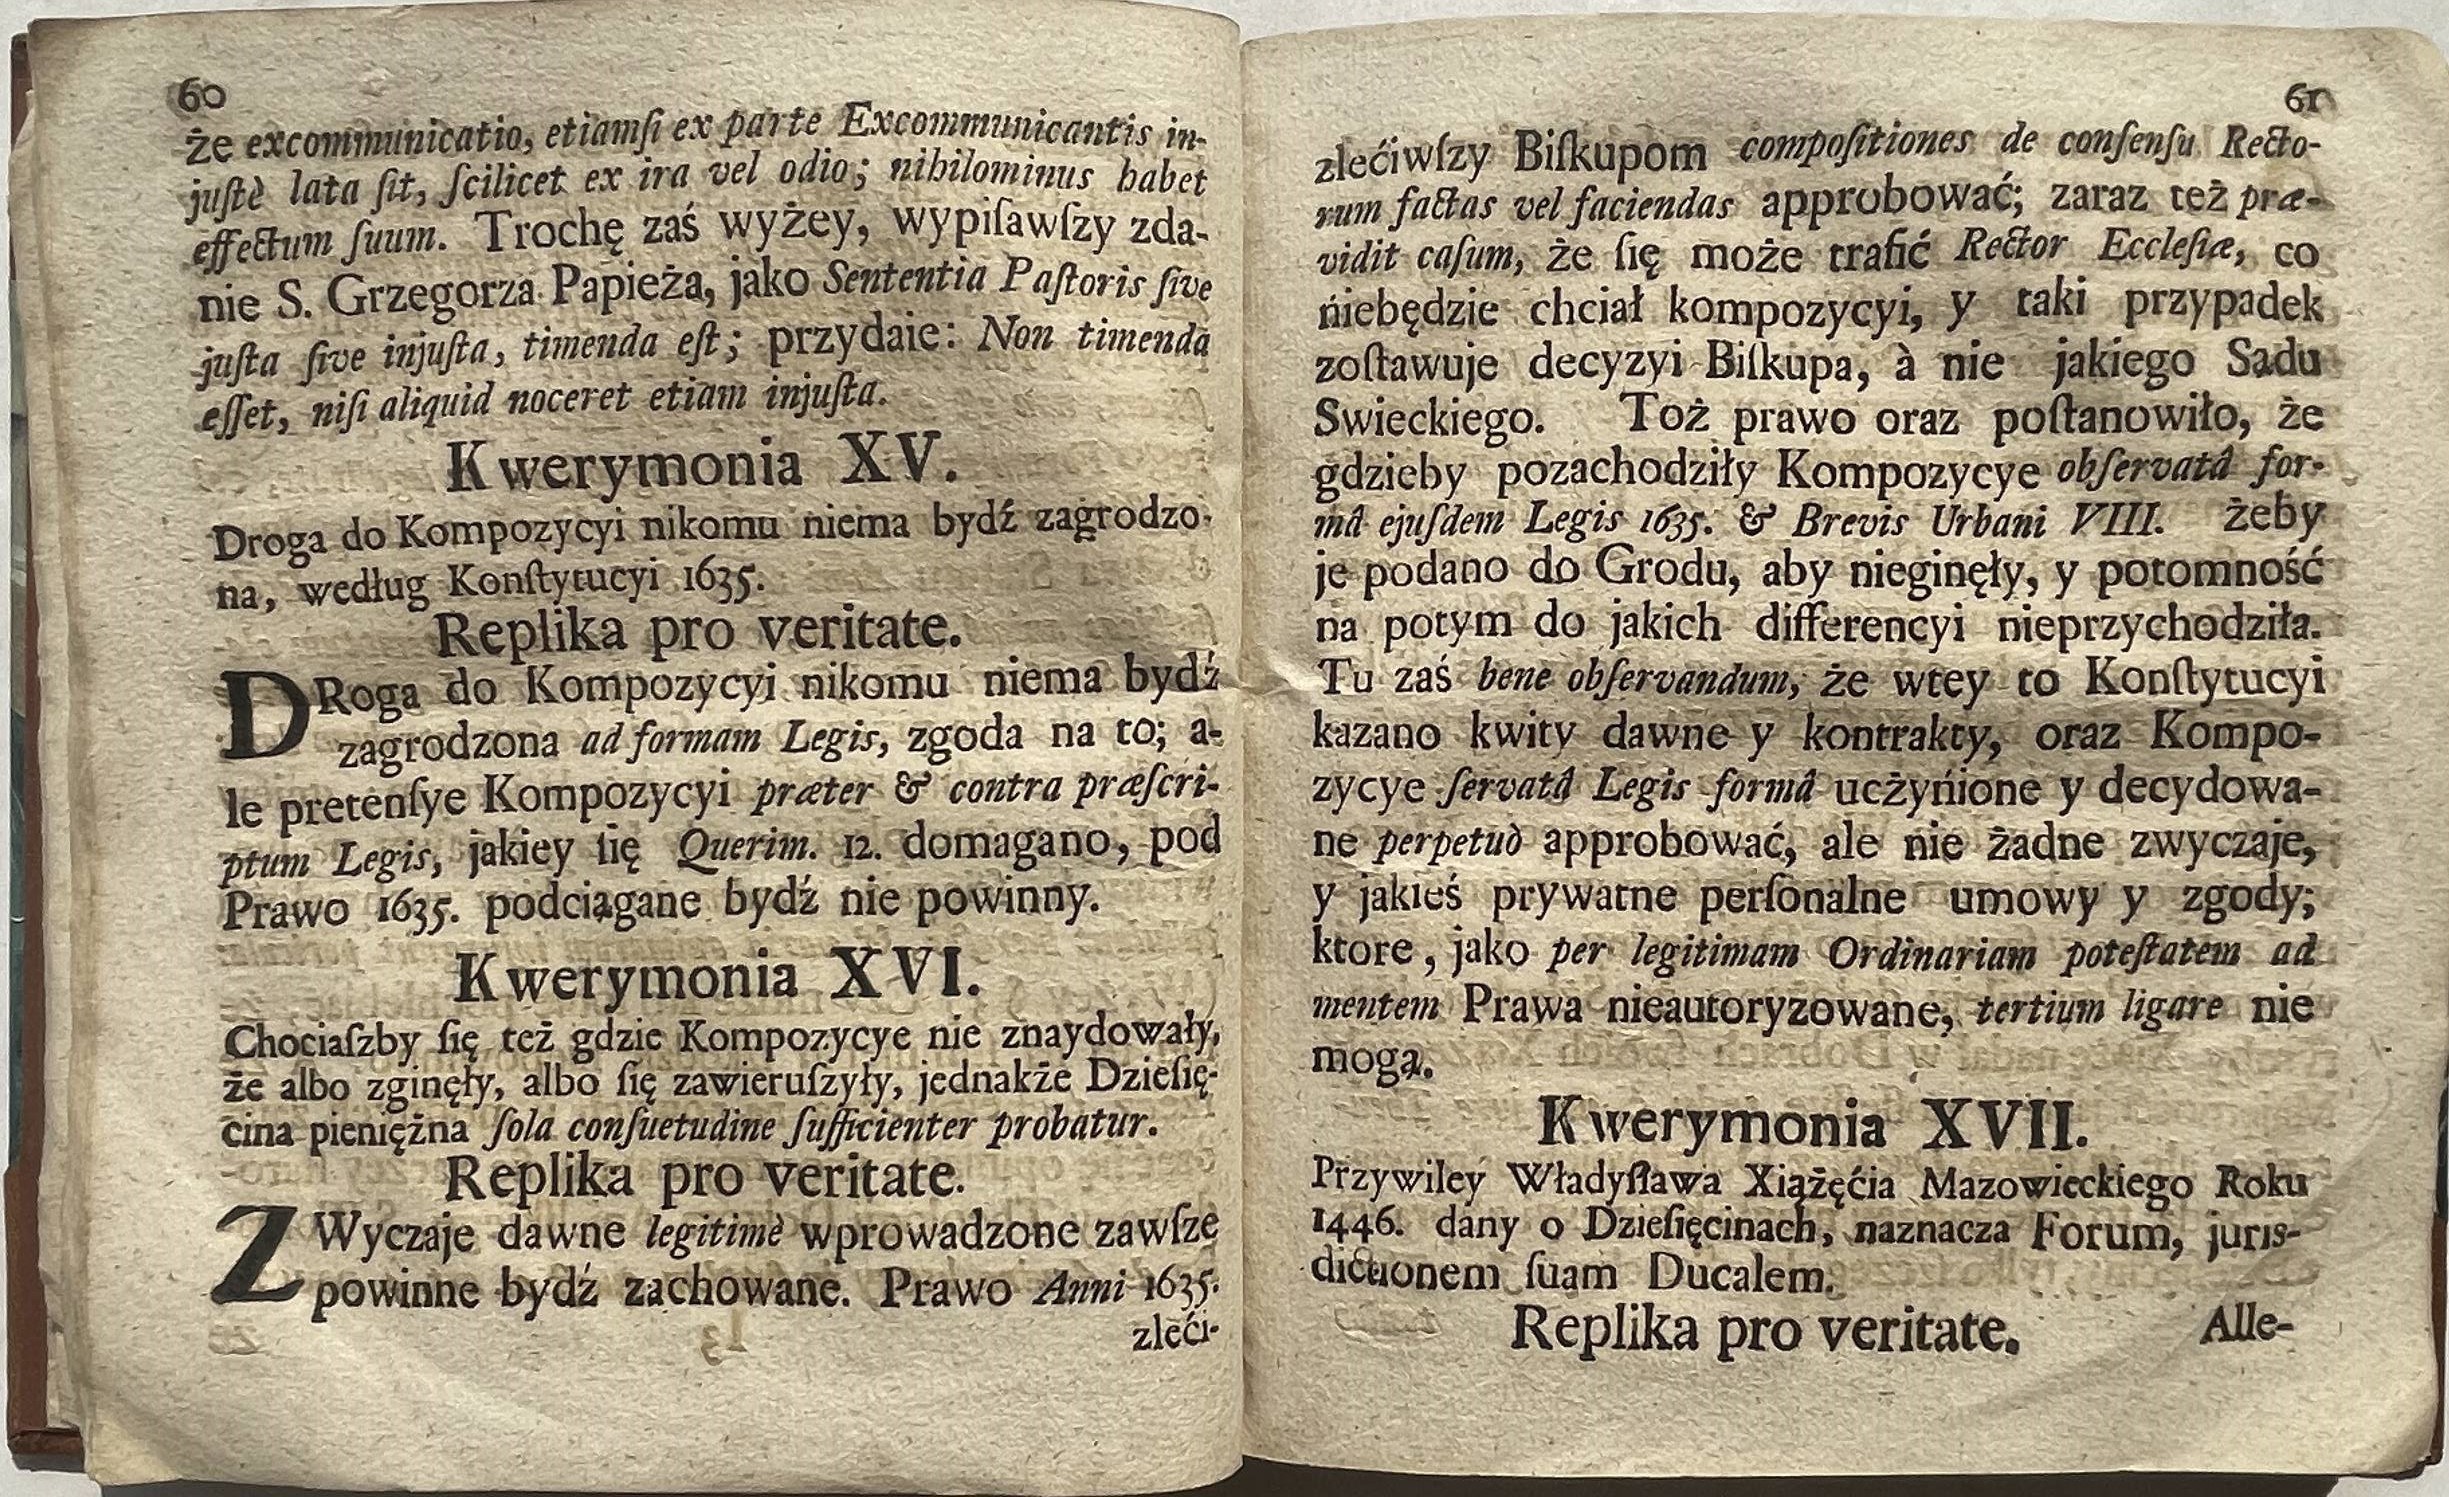 60
że excommunicatio, etiamſi ex parte Excommunicantis in-
juſtè lata ſit, ſcilicet ex ira vel odio; nihilominus habet
effectum ſuum. Trochę zaś wyżey, wypiſawſzy zda-
nie S. Grzegorza Papieża, jako Sententia Paſtoris ſive
juſta ſive injuſta, timenda eſt; przydaie: Non timenda
eſſet, niſi aliquid noceret etiam injuſta.
Kwerymonia XV.
Droga do Kompozycyi nikomu niema bydź zagrodzo-
na, według Konſtytucyi 1635.
Replika pro veritate.
DRoga do Kompozycyi nikomu niema bydź
zagrodzona ad formam Legis, zgoda na to; a-
le pretenſye Kompozycyi præter & contra præſcri-
ptum Legis, jakiey ſię Querim. 12. domagano, pod
Prawo 1635. podciągane bydź nie powinny.
Kwerymonia XVI.
Chociaſzby ſię też gdzie Kompozycye nie znaydowały,
że albo zginęły, albo ſię zawieruſzyły, jednakże Dzieſię-
cina pieniężna ſola conſuetudine ſufficienter probatur.
Replika pro veritate.
ZWyczaje dawne legitimè wprowadzone zawſze
powinne bydź zachowane. Prawo Anni 1635.
zleći-
61
zlećiwſzy Biſkupom compoſitiones de conſenſu Recto-
rum factas vel faciendas approbować; zaraz też præ-
vidit caſum, że ſię może trafić Rector Eccleſiæ, co
niebędzie chciał kompozycyi, y taki przypadek
zoſtawuje decyzyi Biſkupa, à nie jakiego Sadu
Swieckiego. Toż prawo oraz poſtanowiło, że
gdzieby pozachodziły Kompozycye obſervatâ for-
mâ ejuſdem Legis 1635. & Brevis Urbani VIII. żeby
je podano do Grodu, aby nieginęły, y potomność
na potym do jakich differencyi nieprzychodziła.
Tu zaś bene obſervandum, że wtey to Konſtytucyi
kazano kwity dawne y kontrakty, oraz Kompo-
zycye ſervatâ Legis formâ uczyńione y decydowa-
ne perpetuò approbować, ale nie żadne zwyczaje,
y jakieś prywatne perſonalne umowy y zgody;
ktore, jako per legitimam Ordinariam poteſtatem ad
mentem Prawa nieautoryzowane, tertium ligare nie
mogą.
Kwerymonia XVII.
Przywiley Władyſława Xiążęćia Mazowieckiego Roku
1446. dány o Dzieſięcinach, naznacza Forum, juris-
dictionem ſuam Ducalem.
Replika pro veritate.
Alle-